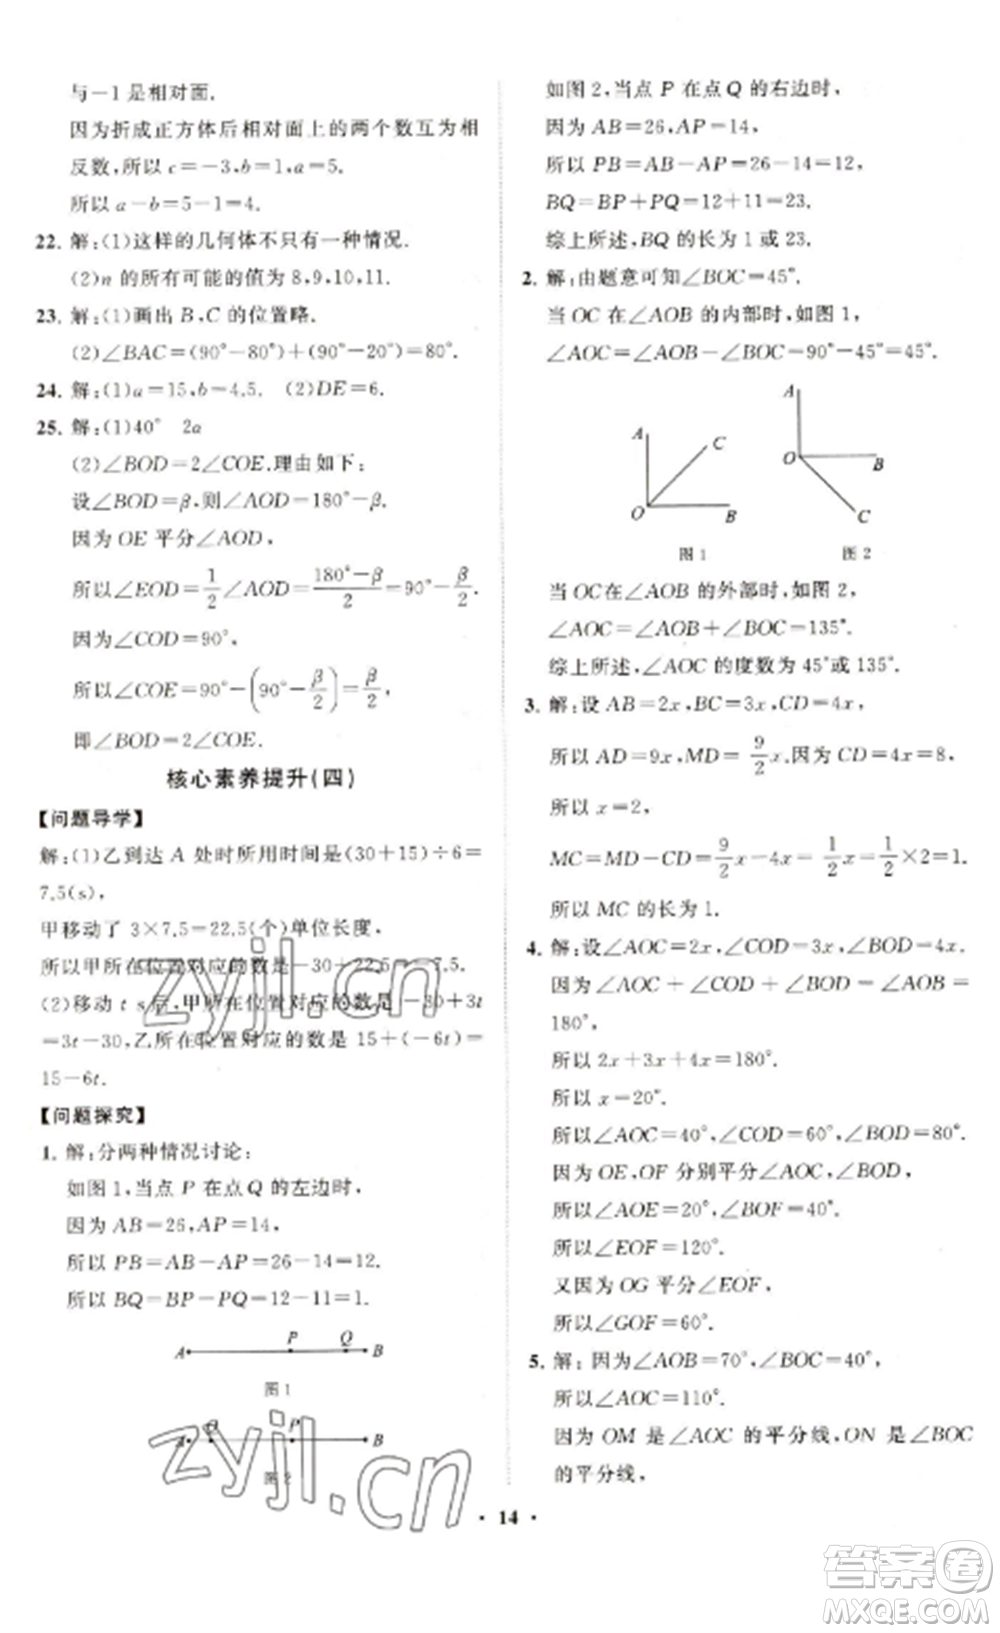 与-1是相对面.
因为折成正方体后相对面上的两个数互为相
反数,所以 c=-3,b=1,a=5.
所以 a-b=5-1=4.
22. 解:(1)这样的几何体不只有一种情况.
(2)n 的所有可能的值为 8,9,10,11.
23. 解:(1)画出 B,C 的位置略.
(2)∠BAC=(90°-80°)+(90°-20°)=80°.
24. 解:(1)a=15,b=4.5. (2)DE=6.
25. 解:(1)40° 2a
(2)∠BOD=2∠COE.理由如下:
设∠BOD=β,则∠AOD=180°-β.
因为 OE 平分∠AOD,
所以∠EOD=1/2∠AOD=(180°-β)/2=90°-β/2.
因为∠COD=90°,
所以∠COE=90°-(90°-β/2)=β/2,
即∠BOD=2∠COE.
核心素养提升(四)
【问题导学】
解:(1)乙到达 A 处时所用时间是(30+15)÷6=
7.5(s),
甲移动了 3×7.5=22.5(个)单位长度,
所以甲所在位置对应的数是-30+22.5=-7.5.
(2)移动 t s后,甲所在位置对应的数是-30+3t
=3t-30,乙所在位置对应的数是 15+(-6t)=
15-6t.
【问题探究】
1. 解:分两种情况讨论:
如图 1,当点 P 在点 Q 的左边时,
因为 AB=26,AP=14,
所以 PB=AB-AP=26-14=12.
所以 BQ=BP-PQ=12-11=1.
A P Q B
图 1
A Q P B
图 2
如图 2,当点 P 在点 Q 的右边时,
因为 AB=26,AP=14,
所以 PB=AB-AP=26-14=12,
BQ=BP+PQ=12+11=23.
综上所述,BQ 的长为 1 或 23.
2. 解:由题意可知∠BOC=45°.
当 OC 在∠AOB 的内部时,如图 1,
∠AOC=∠AOB-∠BOC=90°-45°=45°.
A C O B
图 1
A O B C
图 2
当 OC在∠AOB 的外部时,如图 2,
∠AOC=∠AOB+∠BOC=135°.
综上所述,∠AOC 的度数为 45°或 135°.
3. 解:设 AB=2x,BC=3x,CD=4x,
所以 AD=9x,MD=9/2x.因为 CD=4x=8,
所以 x=2.
MC=MD-CD=9/2x-4x=1/2x=1/2×2=1.
所以 MC 的长为 1.
4. 解:设∠AOC=2x,∠COD=3x,∠BOD=4x.
因为∠AOC+∠COD+∠BOD=∠AOB=
180°,
所以 2x+3x+4x=180°.
所以 x=20°.
所以∠AOC=40°,∠COD=60°,∠BOD=80°.
因为 OE,OF 分别平分∠AOC,∠BOD,
所以∠AOE=20°,∠BOF=40°.
所以∠EOF=120°.
又因为 OG 平分∠EOF,
所以∠GOF=60°.
5. 解:因为∠AOB=70°,∠BOC=40°,
所以∠AOC=110°.
因为 OM 是∠AOC 的平分线,ON 是∠BOC
的平分线,
· 14 ·
zyjl.cn
zyjl.cn
答案卷
MXQE.COM